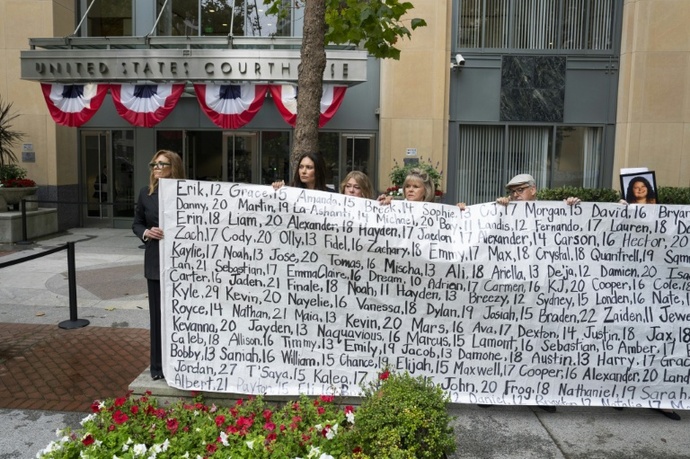 UNITED STATES COURTHOUSE
Erik, 12 Grace, 15 Amanda, 15 Sophie, 13 CJ, 17 Morgan, 15 David, 16 Bryan
Danny, 20 Martin, 19 La-Ashanti, Michael, 20 Bay, 11 Landis, 12 Fernando, 17 Lauren, 18
Erin, 18 Liam, 20 Alexander, 18 Hayden, 17 Jaedon, 17 Alexander, 14 Carson, 16 Hector, 20
Zach, 17 Cody, 20 Olly, 13 Fidel, 16 Zachary, 18 Emily, 17 Max, 18 Crystal, 18 Quantrell, 19
Kaylie, 17 Noah, 13 Jose, 20 Tomas, 16 Mischa, 13 Ali, 18 Ariella, 13 Deja, 12 Damien, 20
Ian, 21 Sebastian, 17 EmmaClaire, 16 Dream, 10 Adrien, 17 Carmen, 16 KJ, 20 Cooper, 16 Cole, 18
Carter, 16 Jaden, 21 Finale, 18 Noah, 11 Hayden, 13 Breezy, 12 Sydney, 15 Londen, 16 Nate,
Kyle, 29 Kevin, 20 Nayelie, 16 Vanessa, 18 Dylan, 19 Josiah, 15 Braden, 22 Zaiden, 11
Royce, 14 Nathan, 21 Maia, 13 Kevin, 20 Mars, 16 Ava, 17 Dexton, 14 Justin, 17 Jax, 18
Kevanna, 20 Jayden, 13 Naquavious, 16 Marcus, 15 Lamont, 16 Sebastian, 16 Amber, 17
Caleb, 18 Allison, 16 Timmy, 13 Emily, 19 Jacob, 13 Damone, 18 Austin, 13 Harry, 17
Bobby, 13 Saniah, 16 William, 15 Chance, 19 Elijah, 15 Maxwell, 17 Cooper, 16 Alexander, 20
Jordan, 27 T'Saya, 15 Kalea, 17 John, 20 Frog, 18 Nathaniel, 18 Sarah,
Albert, 21 Payton, 15 Eli Daniel, 12